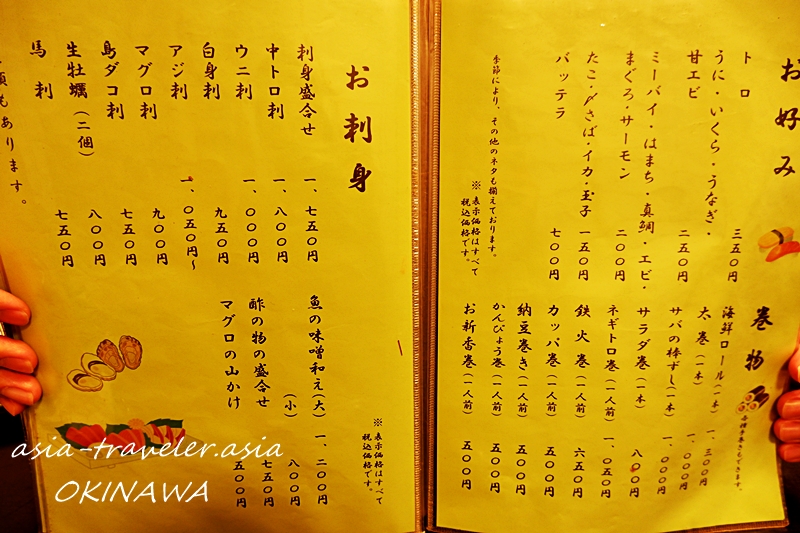 お好み
トロ 三五〇円
うに・いくら・うなぎ・
甘エビ 二五〇円
ミーバイ・はまち・真鯛・エビ・
まぐろ・サーモン 二〇〇円
たこ・〆さば・イカ・玉子 一五〇円
バッテラ 七〇〇円
季節により、その他のネタも揃えております。
※表示価格はすべて
税込価格です。
巻物
各種手巻きもできます。
海鮮ロール(一本) 一、三〇〇円
太巻(一本) 一、〇〇〇円
サバの棒ずし(一本) 一、〇〇〇円
サラダ巻(一本) 八〇〇円
ネギトロ巻(一人前) 一、〇五〇円
鉄火巻(一人前) 六五〇円
カッパ巻(一人前) 五〇〇円
納豆巻き(一人前) 五〇〇円
かんぴょう巻(一人前) 五〇〇円
お新香巻(一人前) 五〇〇円
お刺身
刺身盛合せ 一、七五〇円
中トロ刺 一、八〇〇円
ウニ刺 一、〇〇〇円
白身刺 九五〇円
アジ刺 一、〇五〇円〜
マグロ刺 九〇〇円
島ダコ刺 七五〇円
生牡蠣(二個) 八〇〇円
馬刺 七五〇円
もあります。
魚の味噌和え(大) 一、二〇〇円
(小) 八〇〇円
酢の物の盛合せ 七五〇円
マグロの山かけ 五〇〇円
※表示価格はすべて
税込価格です。
asia-traveler.asia
OKINAWA